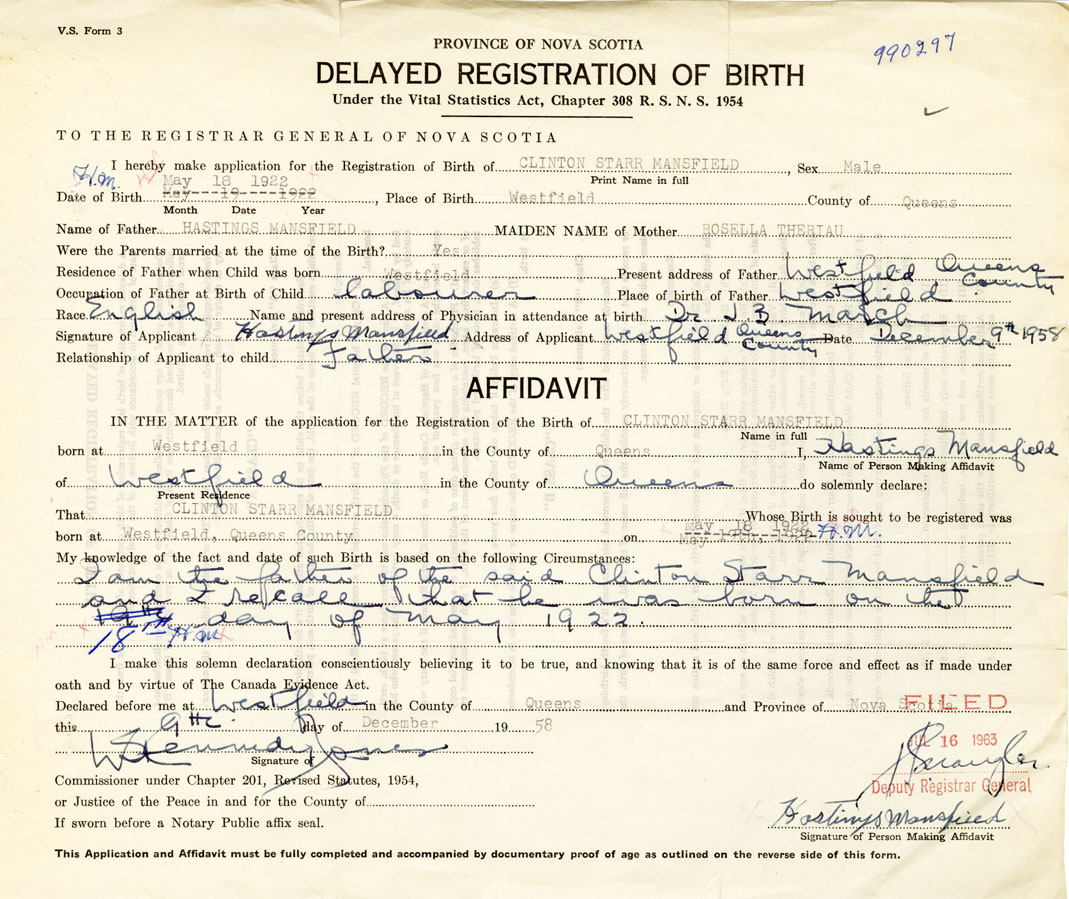 V.S. Form 3
PROVINCE OF NOVA SCOTIA
990297
DELAYED REGISTRATION OF BIRTH
Under the Vital Statistics Act, Chapter 308 R. S. N. S. 1954
TO THE REGISTRAR GENERAL OF NOVA SCOTIA
I hereby make application for the Registration of Birth of CLINTON STARR MANSFIELD, Sex Male
Print Name in full
H.M. May 18 1922
Date of Birth May 19 1922, Place of Birth Westfield County of Queens
Month Date Year
Name of Father HASTINGS MANSFIELD MAIDEN NAME of Mother ROSELLA THERIAU
Were the Parents married at the time of the Birth? Yes
Residence of Father when Child was born Westfield Present address of Father Westfield Queens County
Occupation of Father at Birth of Child labourer Place of birth of Father Westfield
Race English Name and present address of Physician in attendance at birth Dr J. B March
Signature of Applicant Hastings Mansfield Address of Applicant Westfield Queens County Date December 9th 1958
Relationship of Applicant to child Father
AFFIDAVIT
IN THE MATTER of the application for the Registration of the Birth of CLINTON STARR MANSFIELD
Name in full
born at Westfield in the County of Queens I, Hastings Mansfield
Name of Person Making Affidavit
of Westfield in the County of Queens do solemnly declare:
Present Residence
That CLINTON STARR MANSFIELD Whose Birth is sought to be registered was
May 18 1922 H.M.
born at Westfield, Queens County on May 19th, 1922
My knowledge of the fact and date of such Birth is based on the following Circumstances:
I am the father of the said Clinton Starr Mansfield
and I recall that he was born on the
19th day of May 1922.
18th H.M
I make this solemn declaration conscientiously believing it to be true, and knowing that it is of the same force and effect as if made under
oath and by virtue of The Canada Evidence Act.
Declared before me at Westfield in the County of Queens and Province of Nova Scotia
FILED
this 9th day of December 19 58
JUL 16 1963
Kennedy Jones
Signature of
Commissioner under Chapter 201, Revised Statutes, 1954,
Deputy Registrar General
or Justice of the Peace in and for the County of
Hastings Mansfield
If sworn before a Notary Public affix seal.
Signature of Person Making Affidavit
This Application and Affidavit must be fully completed and accompanied by documentary proof of age as outlined on the reverse side of this form.